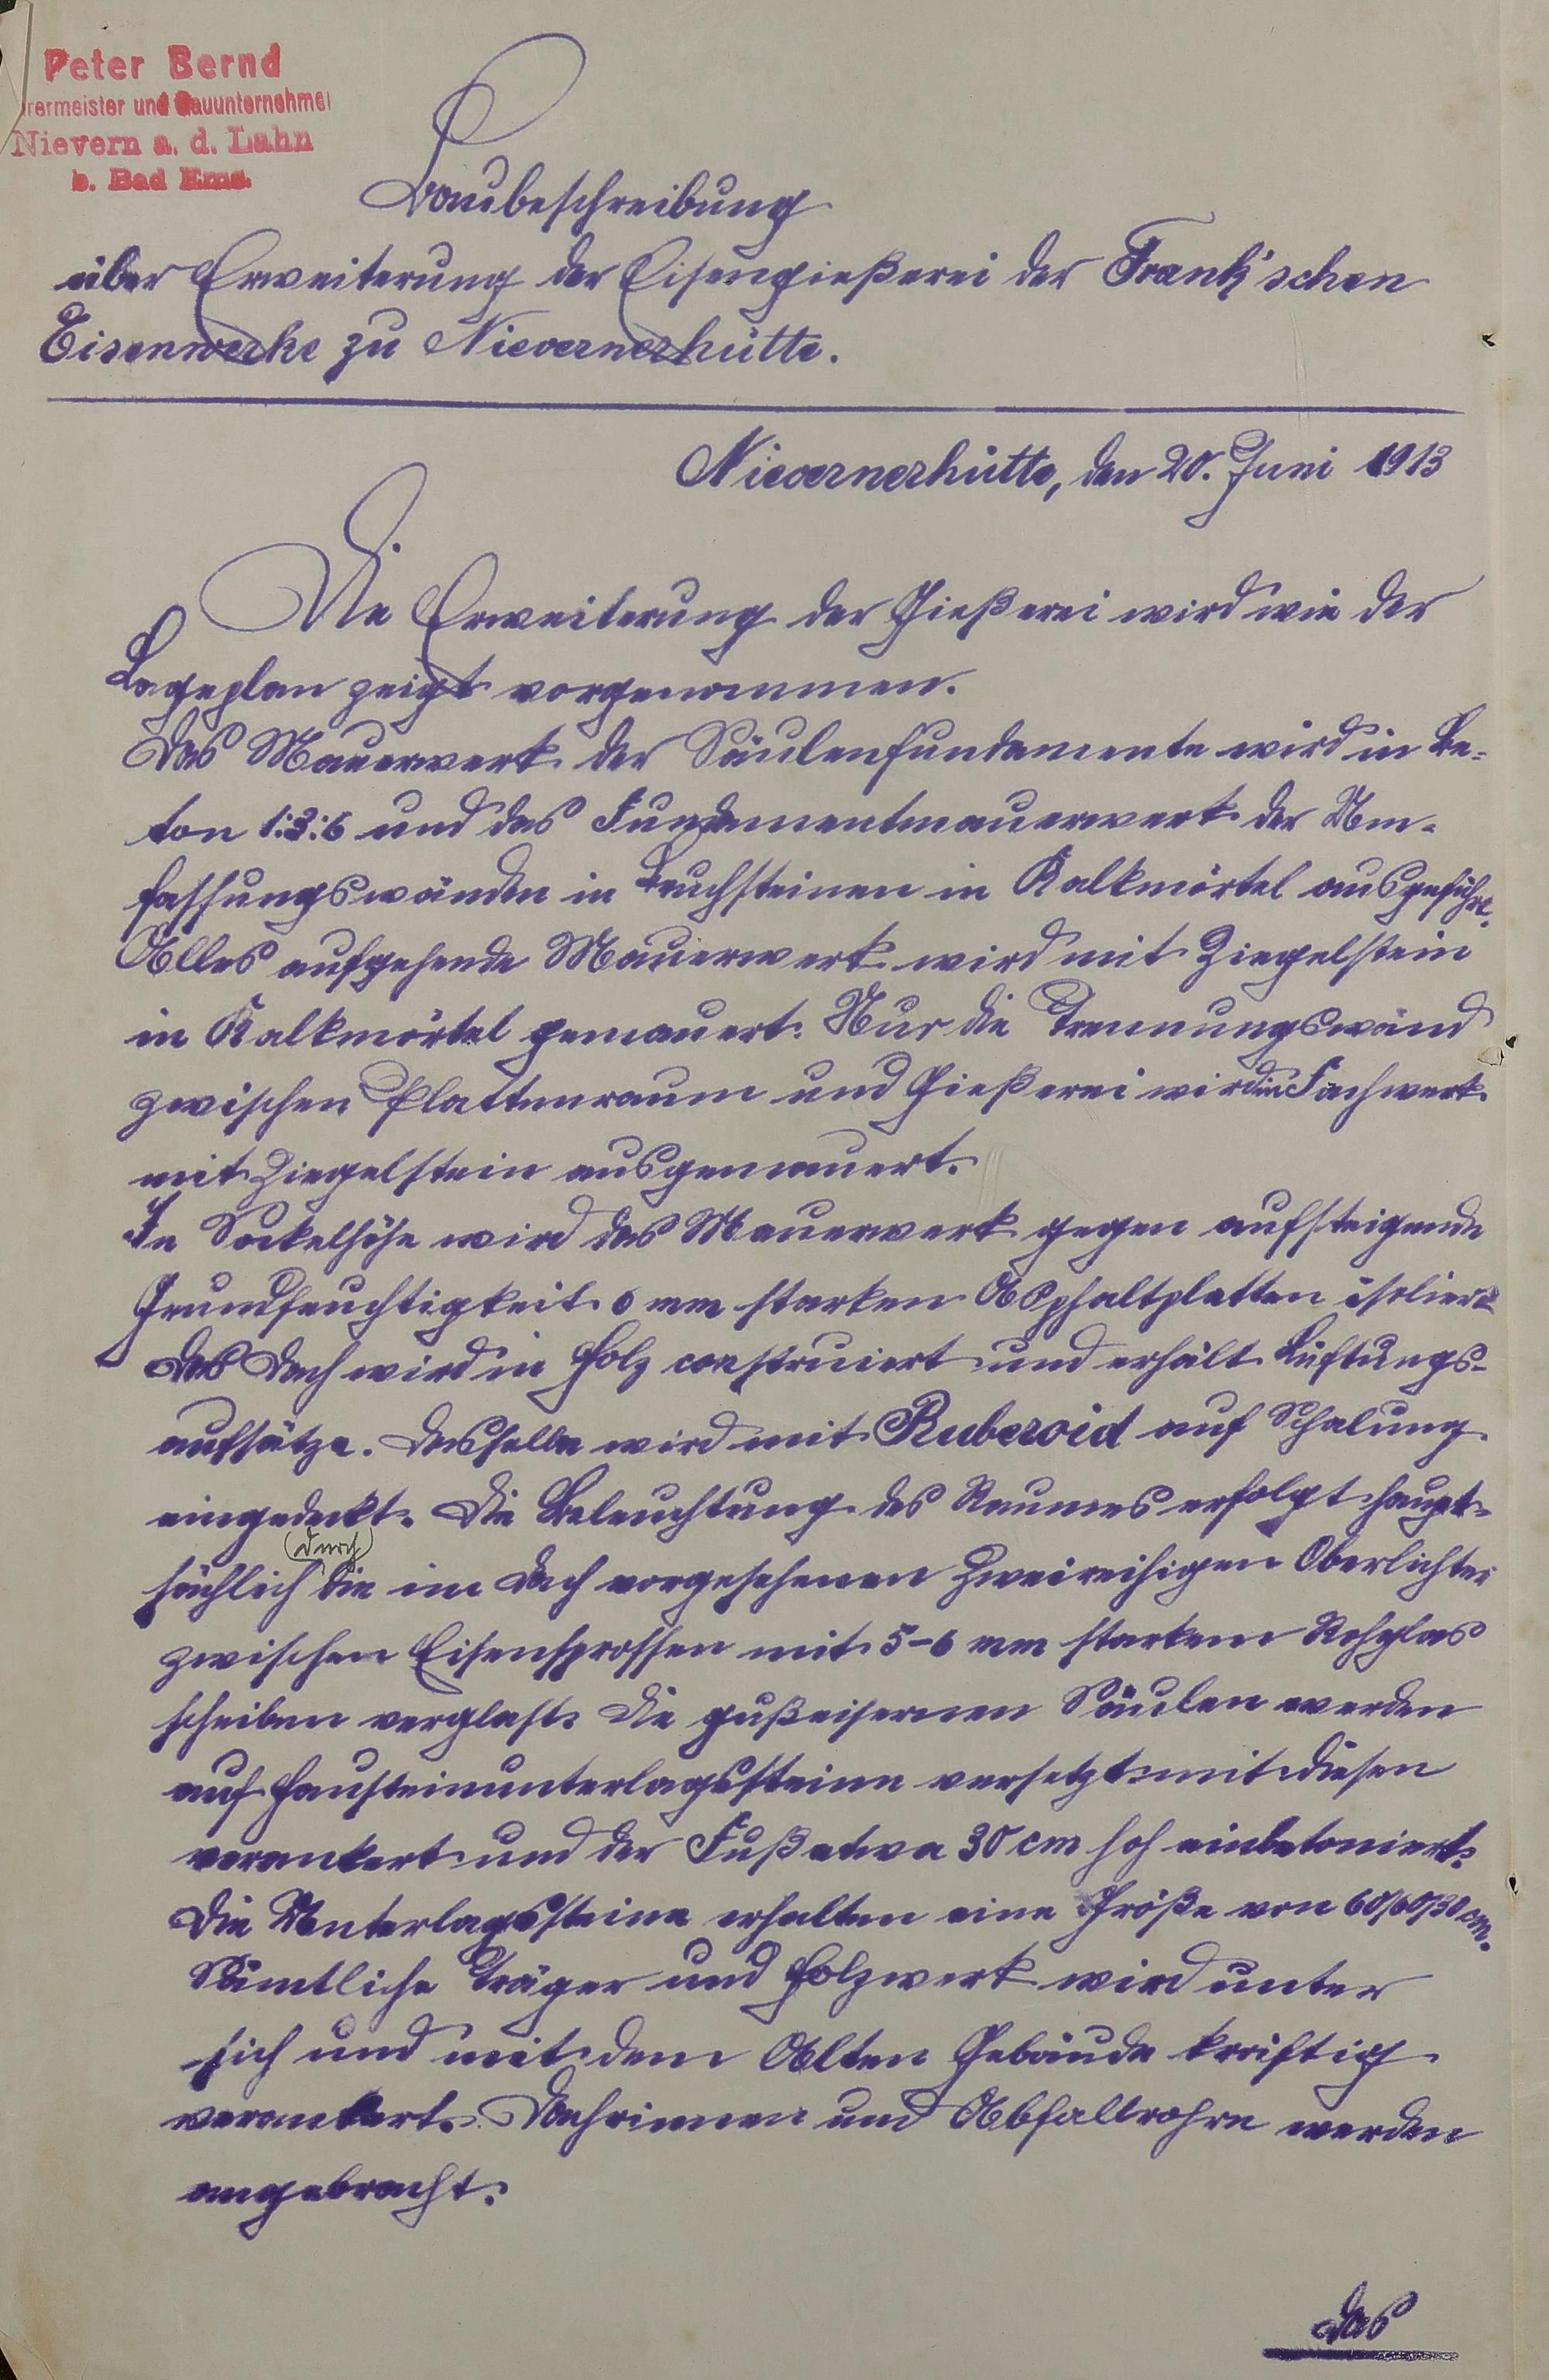 Peter Bernd
rermeister und Bauunternehmer
Nievern a. d. Lahn
b. Bad Ems.
Baubeschreibung
über Erweiterung der Eisengießerei der Frank'schen
Eisenwerke zu Nievernerhütte.
Nievernerhütte, den 20. Juni 1913
Die Erweiterung der Gießerei wird wie der
Lageplan zeigt vorgenommen.
Das Mauerwerk der Säulenfundamente wird in Be-
ton 1:3:6 und das Fundamentmauerwerk der Um-
fassungswänden in Bruchsteinen in Kalkmörtel ausgeführt.
Alles aufgehende Mauerwerk wird mit Ziegelstein
in Kalkmörtel gemauert. Nur die Trennungswand
zwischen Plattenraum und Gießerei wird in Fachwerk
mit Ziegelstein ausgemauert.
In Sockelhöhe wird das Mauerwerk gegen aufsteigende
Grundfeuchtigkeit 6 mm starken Asphaltplatten isoliert
Das Dach wird in Holz construiert und erhält Lüftungs-
aufsätze. Dasselbe wird mit Ruberoid auf Schalung
eingedeckt. Die Beleuchtung des Raumes erfolgt haupt-
(durch)
sächlich die im Dach vorgesehenen zweireihigen Oberlichter
zwischen Eisensprossen mit 5-6 mm starkem Rohglas
scheiben verglast. Die gußeisernen Säulen werden
auf Hausteinunterlagssteine versetzt mit diesen
verankert und der Fuß etwa 30 cm hoh einbetoniert.
Die Unterlagssteine erhalten eine Größe von 60/60/30 cm.
Sämtliche Träger und Holzwerk wird unter
sich und mit dem Alten Gebäude kräftig
verankert. Dachrinnen und Abfallrohre werden
angebracht.
Das